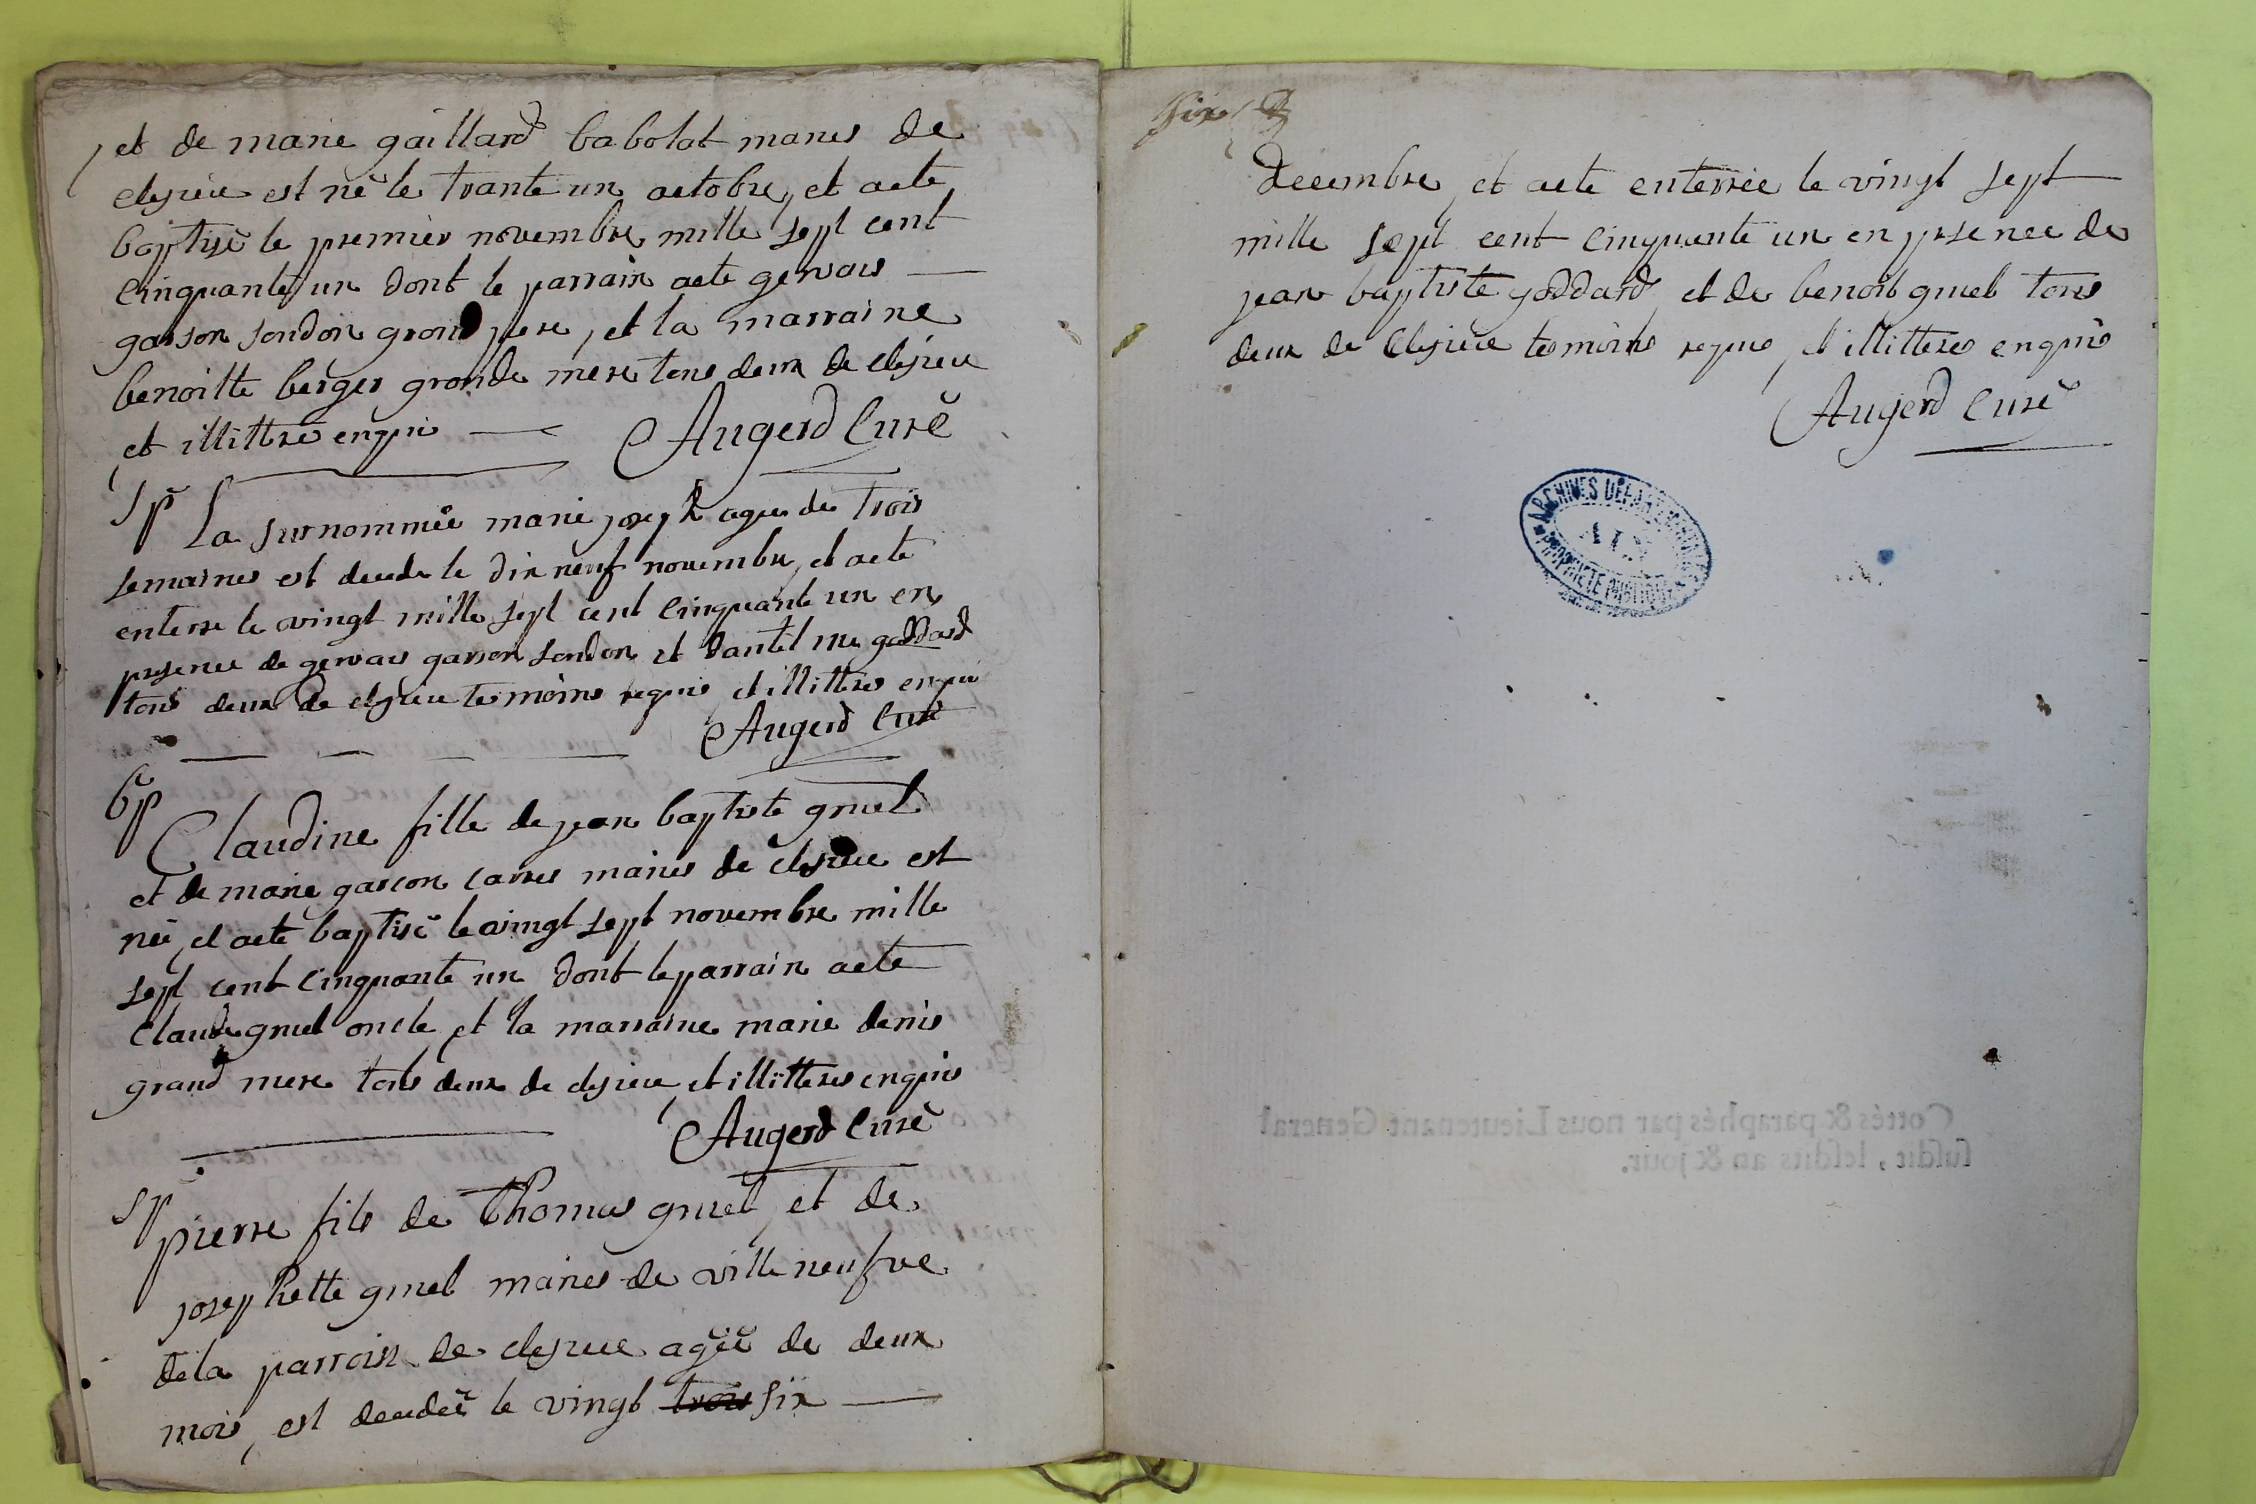 et de marie gaillard babolat maries de
clesieu est né le trante un octobre, et aeté
baptisé le premier novembre mille sept cent
cinquante un dont le parrain aeté gervais
garson sondon grond pere, et la marraine
benoitte berger grande mere tous deux de clesieu
et illittré enquis Augerd Curé
Sp La surnommée marie joseph agee de trois
semaines est decede le dix neuf novembre, et aeté
enterre le vingt mille sept cent cinquante un en
presence de gervais garson sondon et goddard
tous deux de clesieu temoins requis, et illittres enquis
Augerd Curé
bp Claudine fille de jean baptiste gruel
et de marie garcon maries de clesieu est
née, et aeté baptisé le vingt sept novembre mille
sept cent cinquante un dont le parrain aeté
Claude gruel oncle, et la marraine marie denis
grand mere tous deux de clesieu, et illitteres enquis
Augerd Curé
Sp pierre fils de Thomas gruel, et de
josephette gruel maries de ville neufve
de la parroisse de clesieu agée de deux
mois, est decedée le vingt trois six
six
decembre, et aeté enterrée le vingt sept
mille sept cent cinquante un en presence de
jean baptiste goddard, et de benoit gruel tous
deux de Clesieu temoins requis, et illitteres enquis
Augerd Curé
ARCHIVES DÉPARTEMENTALES
AIN
PROPRIÉTÉ PUBLIQUE
Cottés & paraphés par nous Lieutenant General
susdit, lesdits an & jour.